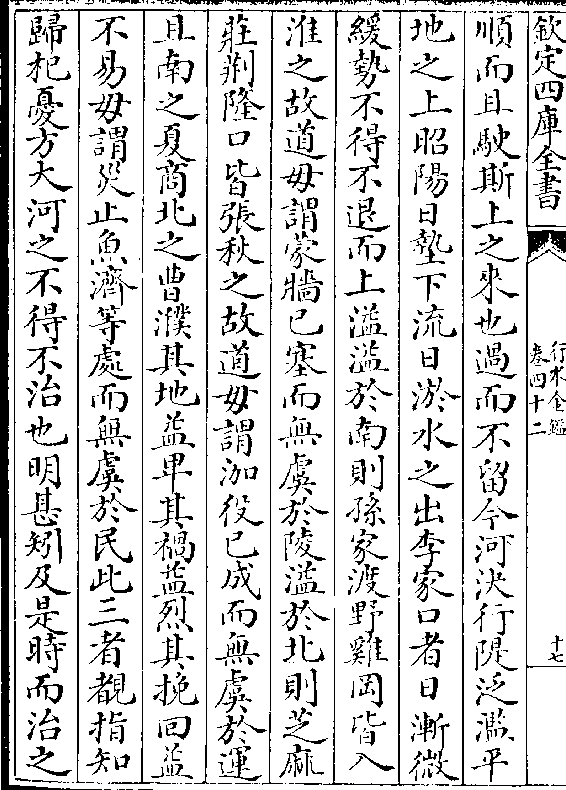 欽定四庫全書
行水金鑑
卷四十二
十七
順而且駛斯上之來也過而不留今河決行隄泛濫平
地之上昭陽日墊下流日淤水之出李家口者日漸微
緩勢不得不退而上溢溢於南則孫家渡野雞岡皆入
淮之故道毋謂蒙牆已塞而無虞於陵溢於北則芝麻
莊荆隆口皆張秋之故道毋謂泇役已成而無虞於運
且南之夏商北之曹濮其地益卑其禍益烈其挽回益
不易毋謂災止魚濟等處而無虞於民此三者覩指知
歸杞憂方大河之不得不治也明甚矧及是時而治之